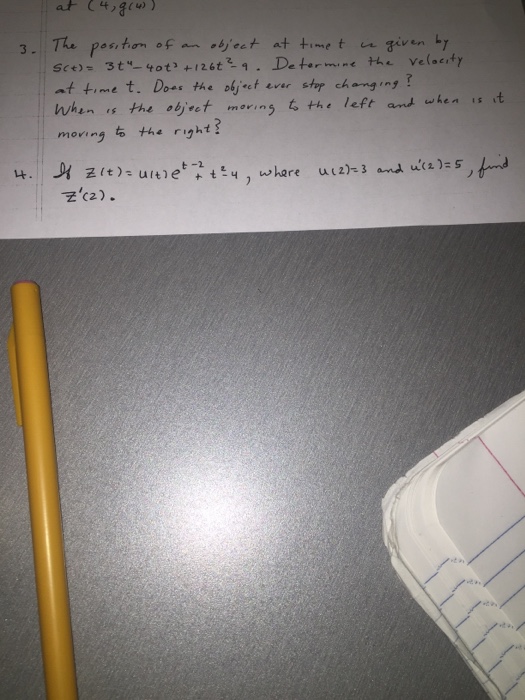 at (4, g(4))
3. The position of an object at time t is given by
S(t) = 3t⁴ - 40t³ + 126t² - 9. Determine the velocity
at time t. Does the object ever stop changing?
When is the object moving to the left and when is it
moving to the right?
4. If Z(t) = u(t)e^{t-2} + t² - 4, where u(2)=3 and u'(2)=5, find
Z'(2).